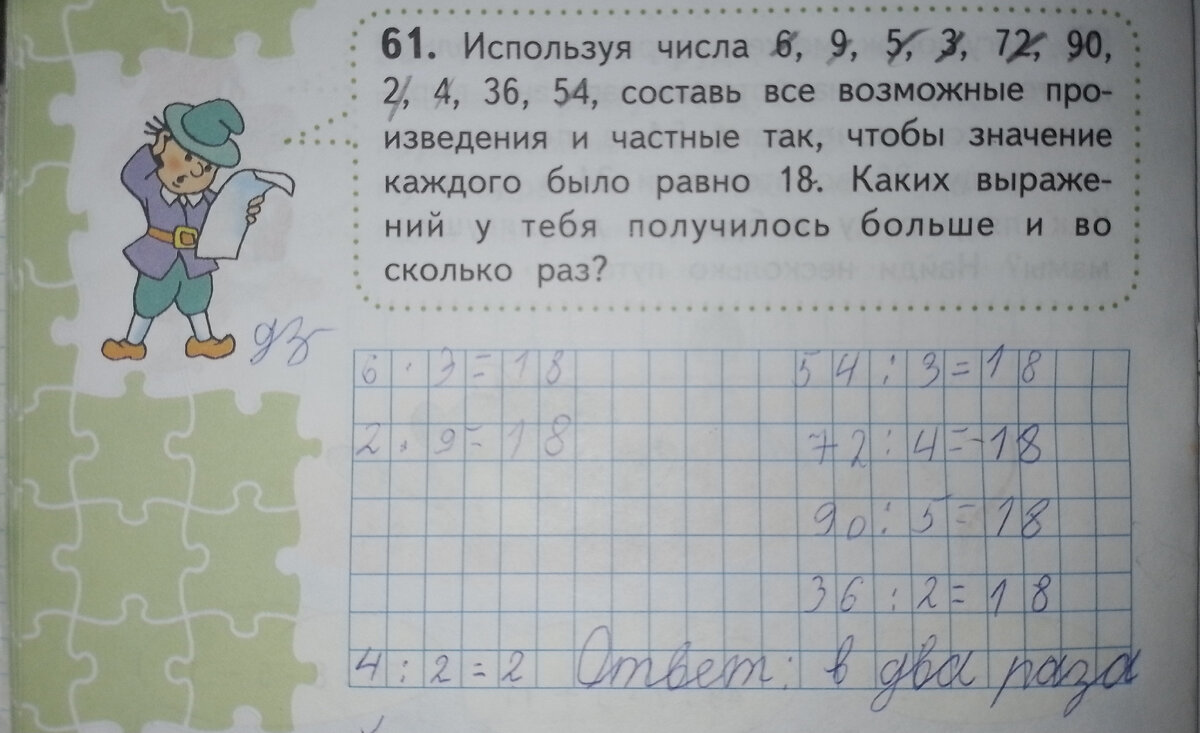 61. Используя числа 6, 9, 5, 3, 72, 90,
2, 4, 36, 54, составь все возможные про-
изведения и частные так, чтобы значение
каждого было равно 18. Каких выраже-
ний у тебя получилось больше и во
сколько раз?
дз
6 · 3 = 18 54 : 3 = 18
2 · 9 = 18 72 : 4 = 18
90 : 5 = 18
36 : 2 = 18
4 : 2 = 2 Ответ: в два раза